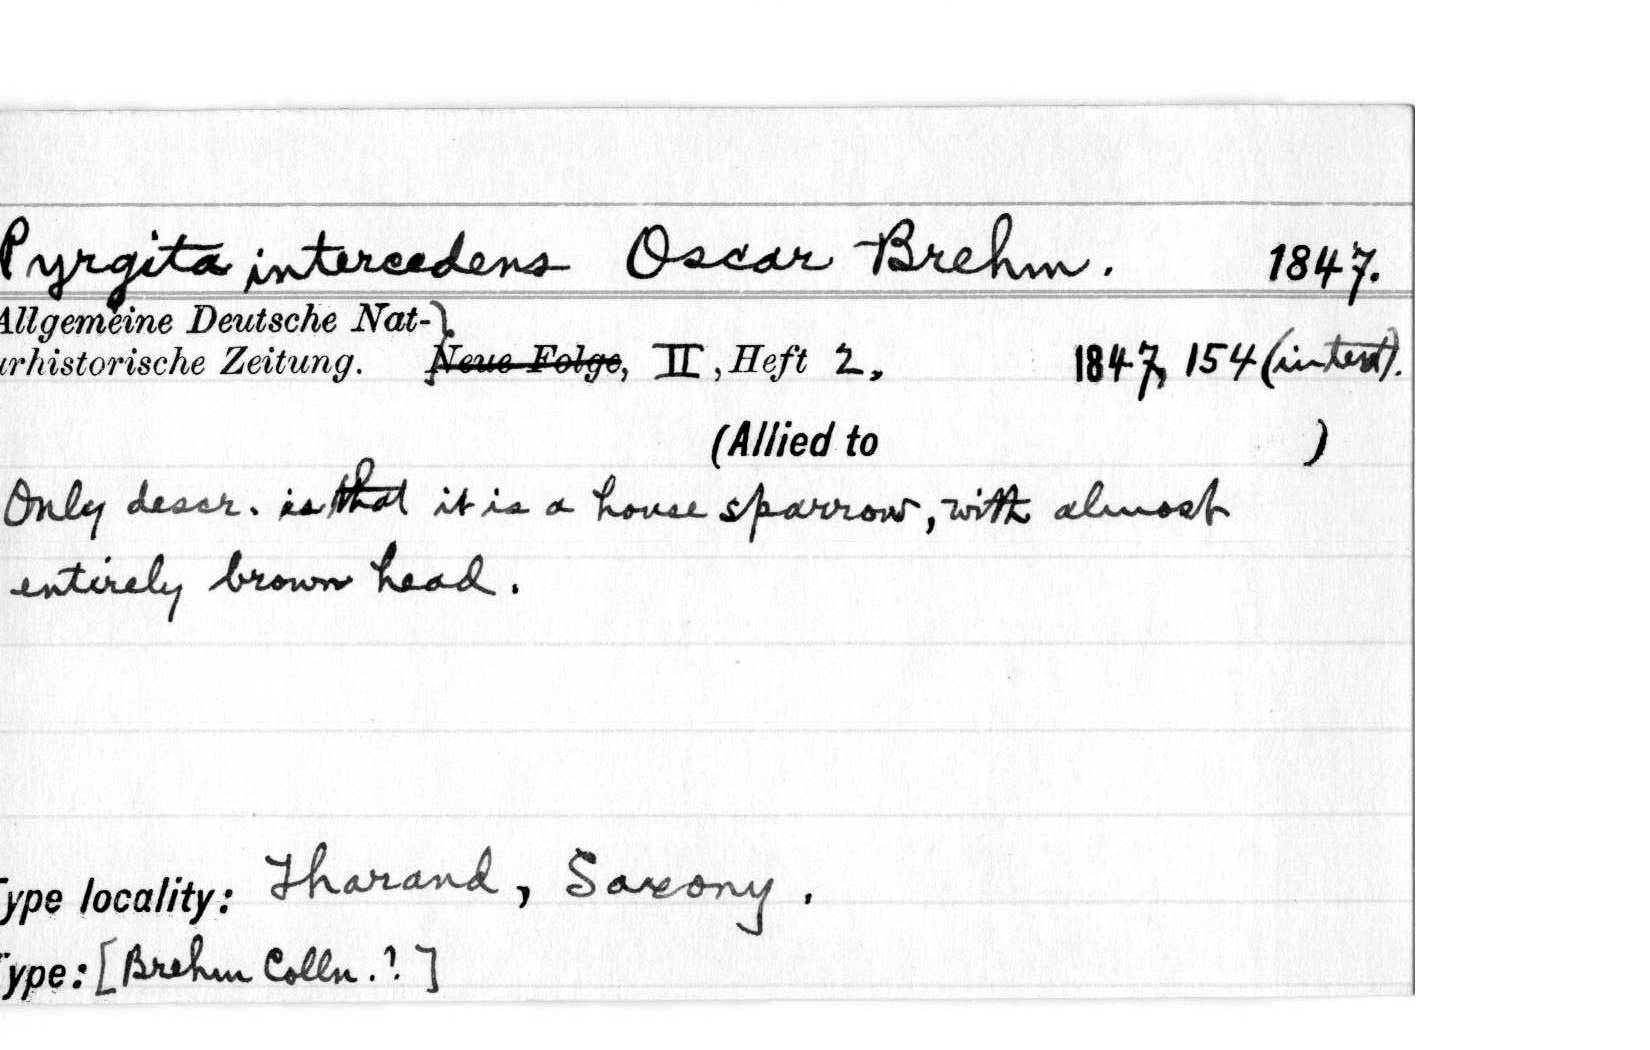 Pyrgita intercedens Oscar Brehm. 1847.
Allgemeine Deutsche Nat-}
urhistorische Zeitung. Neue Folge, II, Heft 2, 1847, 154 (in text).
(Allied to )
Only descr. is that it is a house sparrow, with almost
entirely brown head.
Type locality: Tharand, Saxony.
Type: [Brehm Colln.?]